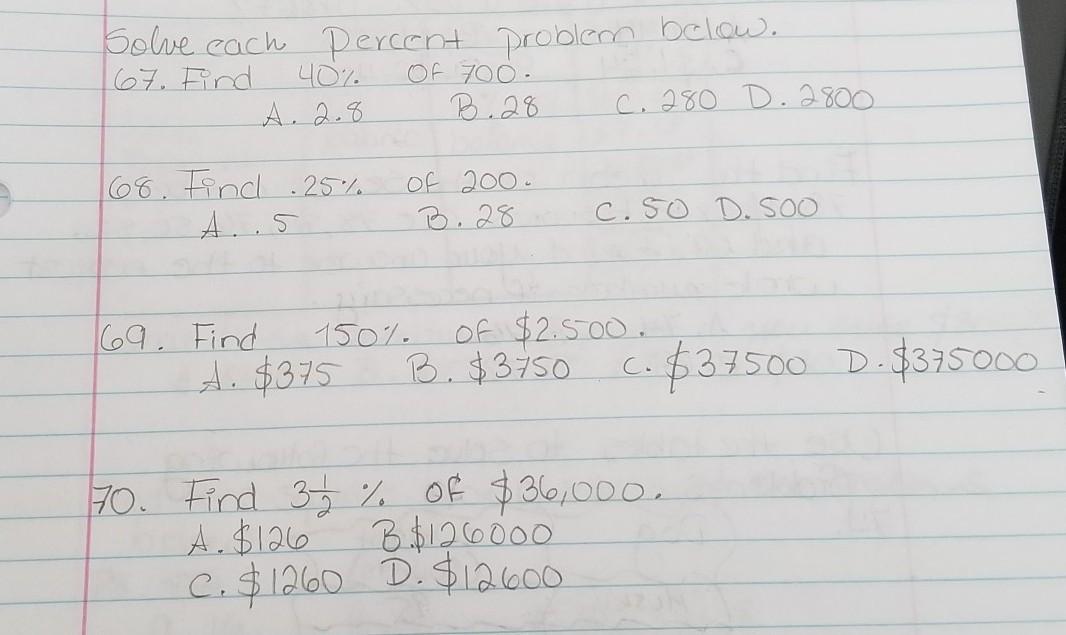 Solve each Percent problem below.
67. Find 40% of 700.
A. 2.8 B. 28 C. 280 D. 2800
68. Find .25% of 200.
A. .5 B. 28 C. 50 D. 500
69. Find 150% of $2.500.
A. $375 B. $3750 C. $37500 D. $375000
70. Find 3 1/2 % of $36,000.
A. $126 B. $126000
C. $1260 D. $12600